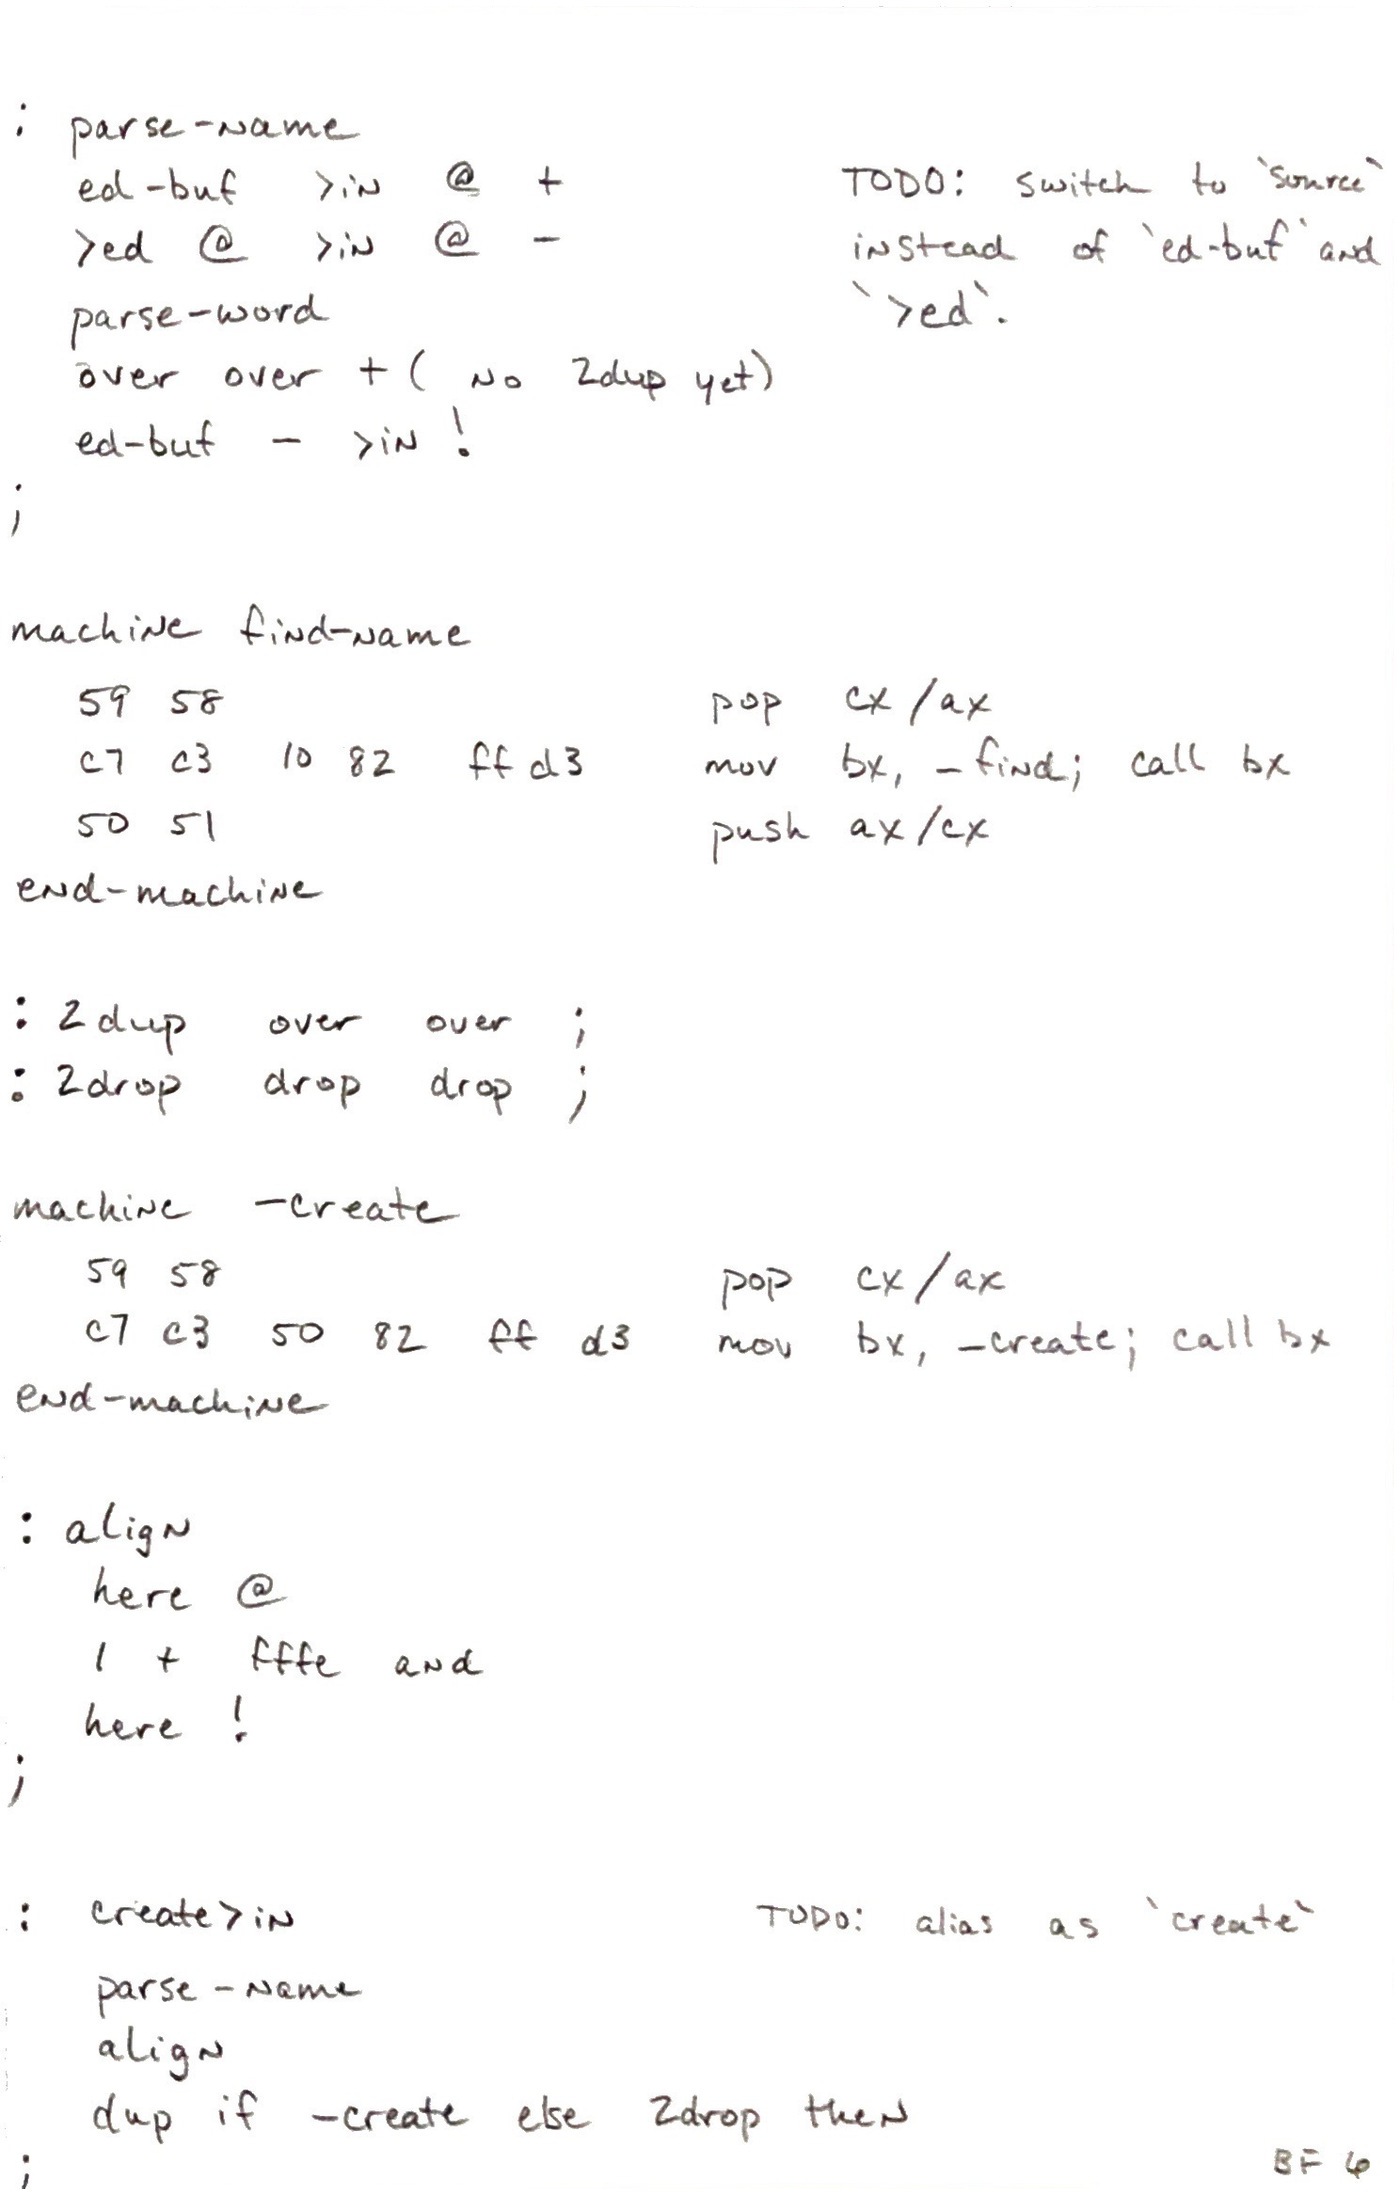 : parse-name
ed-buf >in @ + TODO: switch to `source`
>ed @ >in @ - instead of `ed-buf` and
parse-word `>ed`.
over over + ( no 2dup yet)
ed-buf - >in !
;
machine find-name
59 58 pop cx/ax
c7 c3 10 82 ff d3 mov bx, -find; call bx
50 51 push ax/cx
end-machine
: 2dup over over ;
: 2drop drop drop ;
machine -create
59 58 pop cx/ax
c7 c3 50 82 ff d3 mov bx, -create; call bx
end-machine
: align
here @
1 + fffe and
here !
;
: create>in TODO: alias as `create`
parse-name
align
dup if -create else 2drop then
;
BF 6